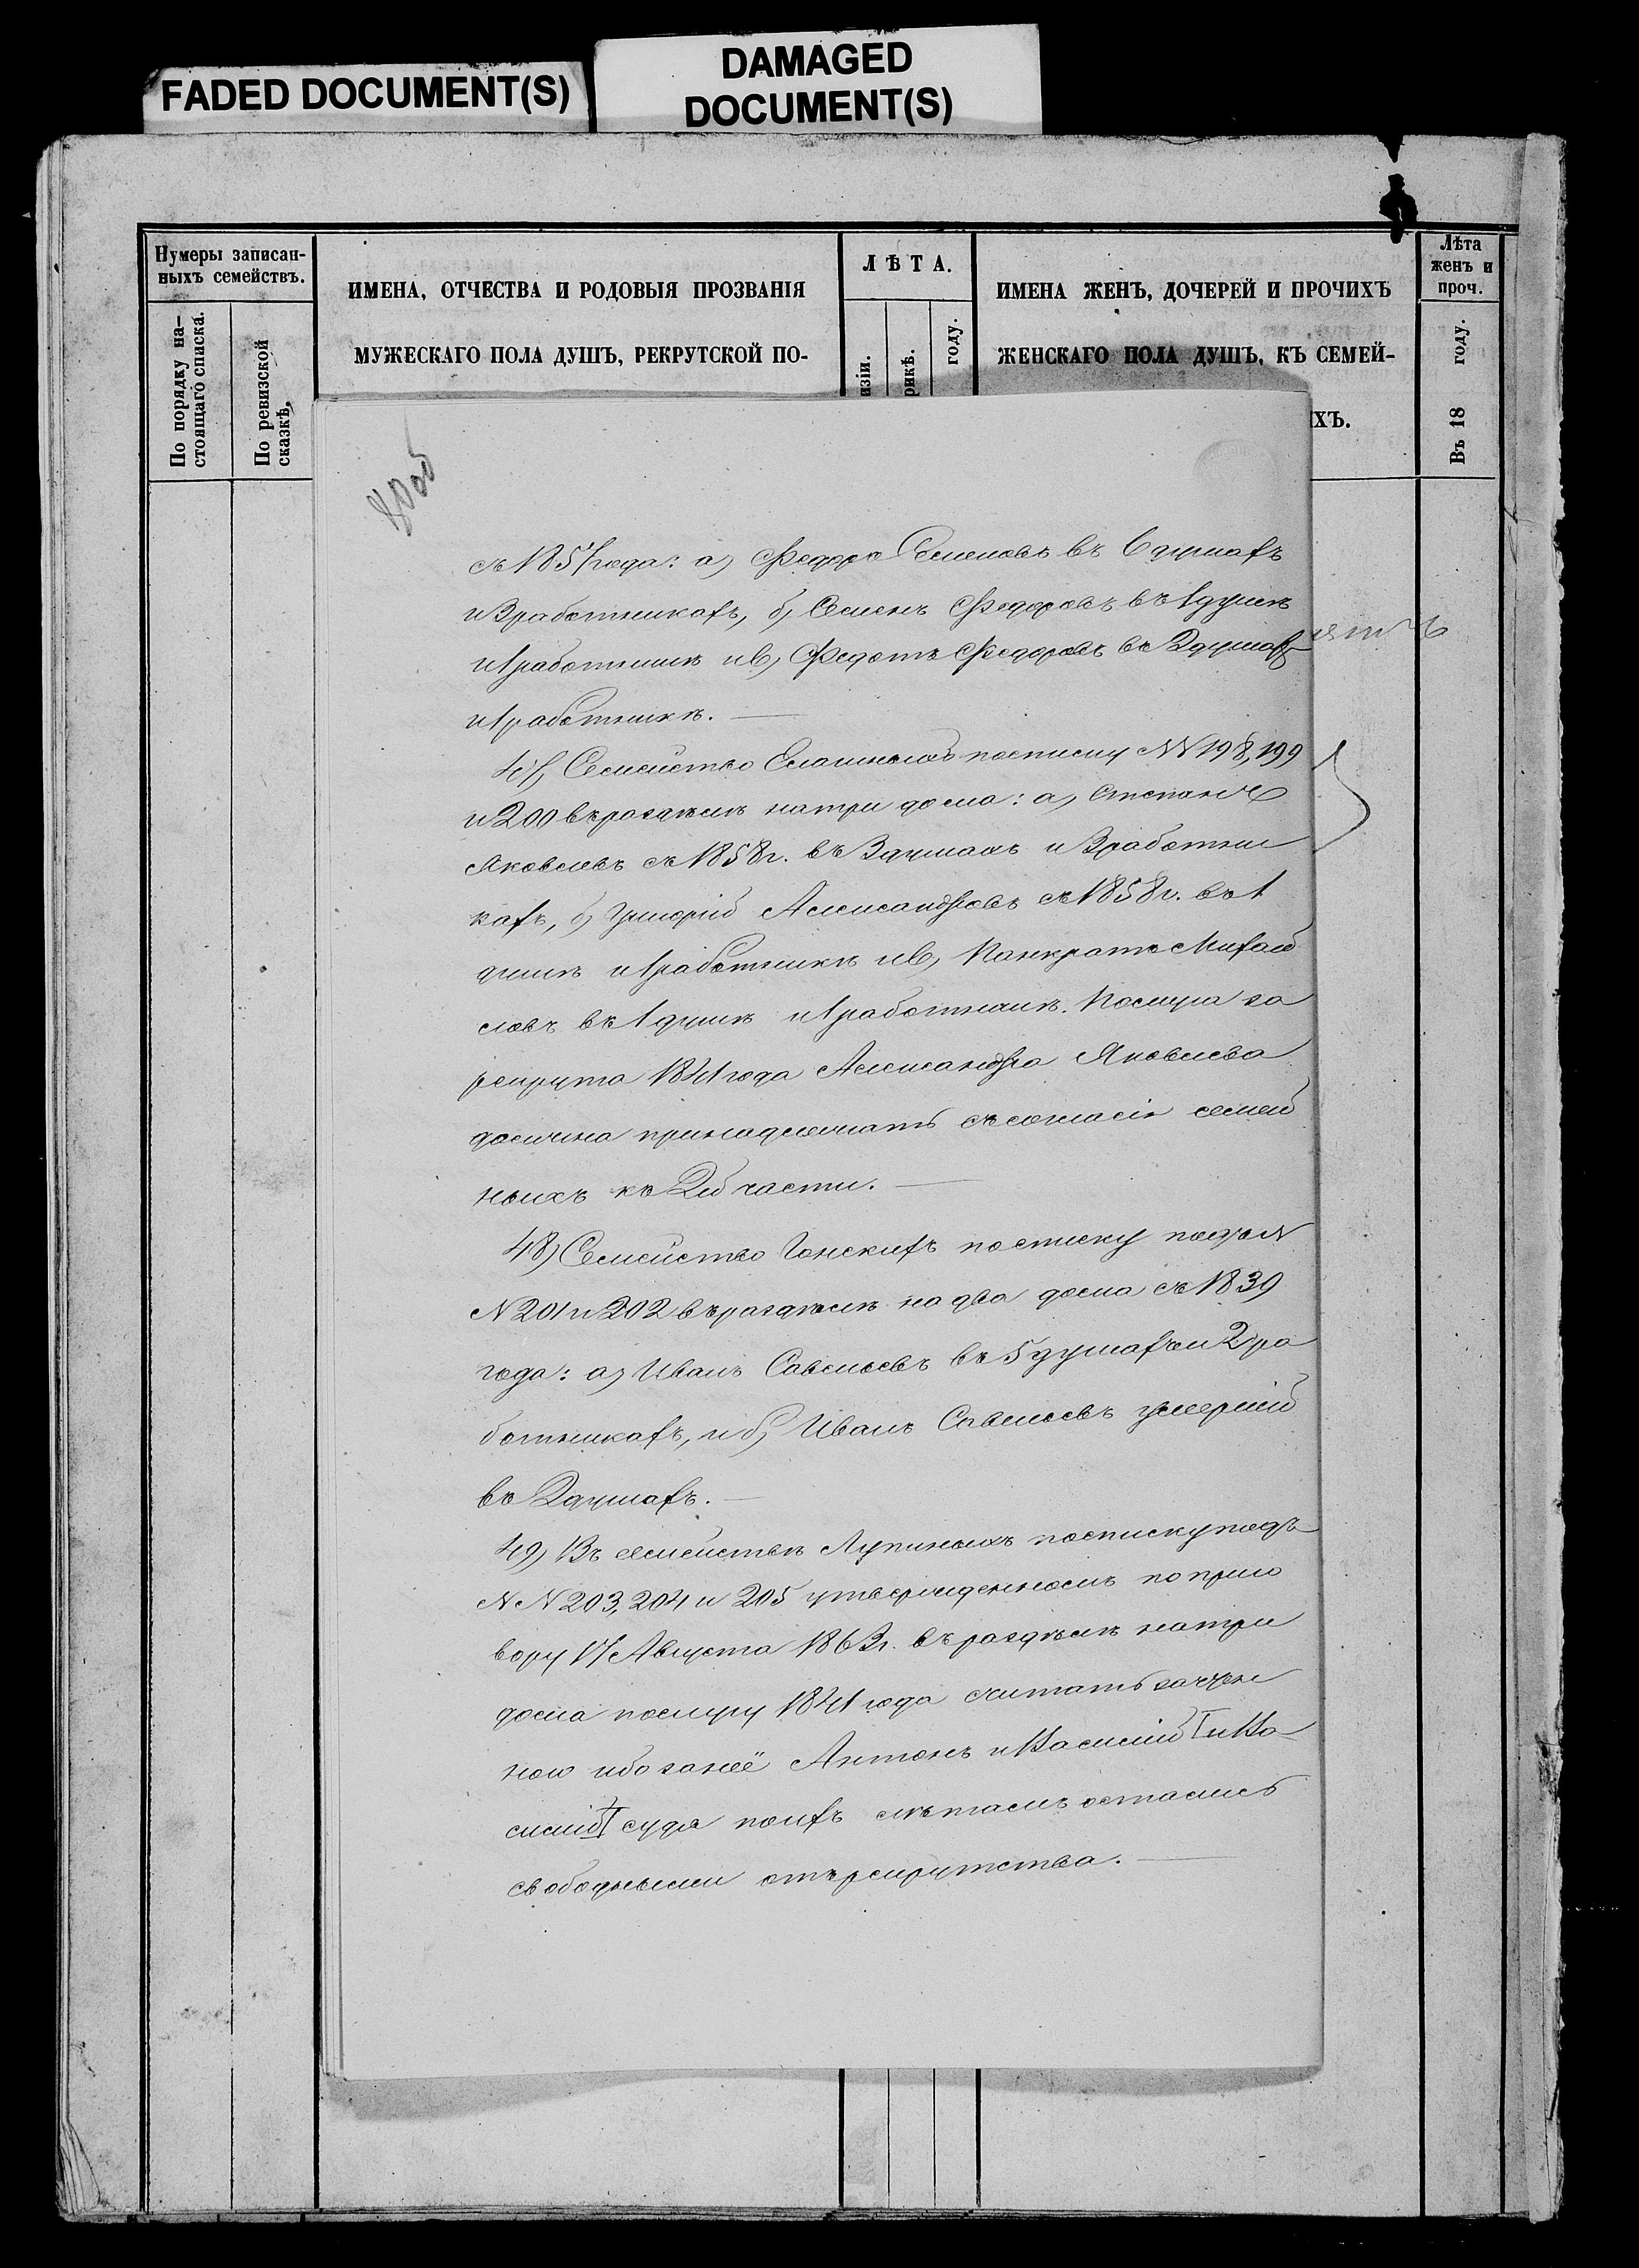 FADED DOCUMENT(S)
DAMAGED
DOCUMENT(S)
Нумеры записан-
ныхъ семействъ.
По порядку на-
стоящаго списка.
По ревизской
сказкѣ.
ИМЕНА, ОТЧЕСТВА И РОДОВЫЯ ПРОЗВАНІЯ
МУЖЕСКАГО ПОЛА ДУШЪ, РЕКРУТСКОЙ ПО-
ЛѢТА.
изіи.
рикѣ.
году.
ИМЕНА ЖЕНЪ, ДОЧЕРЕЙ И ПРОЧИХЪ
ЖЕНСКАГО ПОЛА ДУШЪ, КЪ СЕМЕЙ-
ИХЪ.
Лѣта
женъ и
проч.
Въ 18 году.
съ 1857 года: а) Федоръ Семеновъ въ 6 душахъ
и 3 работникахъ, б) Семенъ Федоровъ въ 1 душѣ
и 1 работникѣ и в) Федотъ Федоровъ въ 2 душахъ
и 1 работникѣ.
47) Семейство по списку NN 198, 199
и 200 въ раздѣлѣ на три дома: а) Степанъ
Яковлевъ съ 1858 г. въ 3 душахъ и 3 работни
кахъ, б) Григорій Александровъ съ 1858 г. въ 1
душѣ и 1 работникѣ и в) Панкратъ Михай
ловъ въ 1 душѣ и 1 работникѣ. Послуга за
рекрута 1841 года Александра Яковлева
должна принадлежать съ согласія семей
ныхъ ко 2й части.
48) Семейство по списку подъ N
N 201 и 202 въ раздѣлѣ на два дома съ 1839
года: а) Иванъ Савельевъ въ 5 душахъ и 2 ра
ботникахъ, и б) Иванъ Савельевъ умершій
въ 2 душахъ.
49) Въ семействѣ Лупиныхъ по списку подъ
NN 203, 204 и 205 утвержденномъ по приго
вору 17 Августа 1863 г. въ раздѣлѣ на три
дома послугу 1841 года считать
ною ибо за неё Антонъ и Василій I и Ва
силій II судя по ихъ лѣтамъ остались
свободными отъ рекрутства.